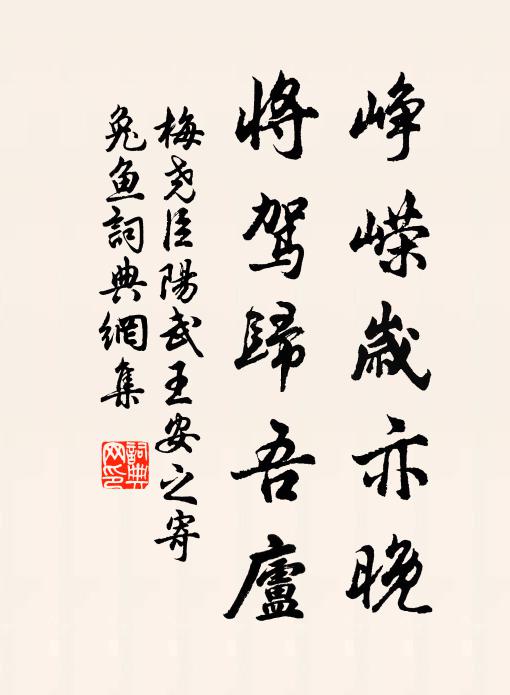 崢嶸歲亦晚
將駕歸吾廬
梅堯臣陽武王安之寄
兔魚詞典網集
詞典网印